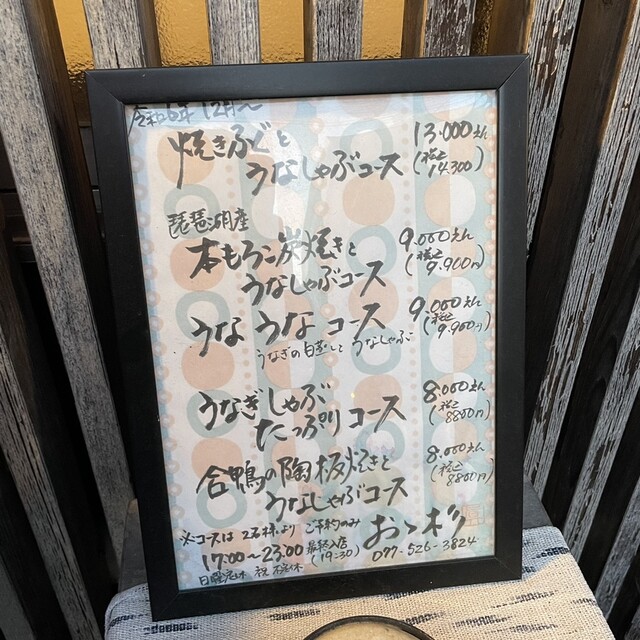 令和6年 12月〜
焼きふぐと 13.000えん
うなしゃぶコース (税込 14.300)
琵琶湖産
本もろこ炭焼きと 9.000えん
うなしゃぶコース (税込 9.900円)
うなうなコース 9.000えん
(税込 9.900円)
うなぎの白蒸しと うなしゃぶ
うなぎしゃぶ 8.000えん
たっぷりコース (税込 8800円)
合鴨の陶板焼きと 8.000えん
うなしゃぶコース (税込 8800円)
※コースは2名様より ご予約のみ
17:00〜23:00 最終入店 (19:30)
日曜定休 祝 不定休
077-526-3824